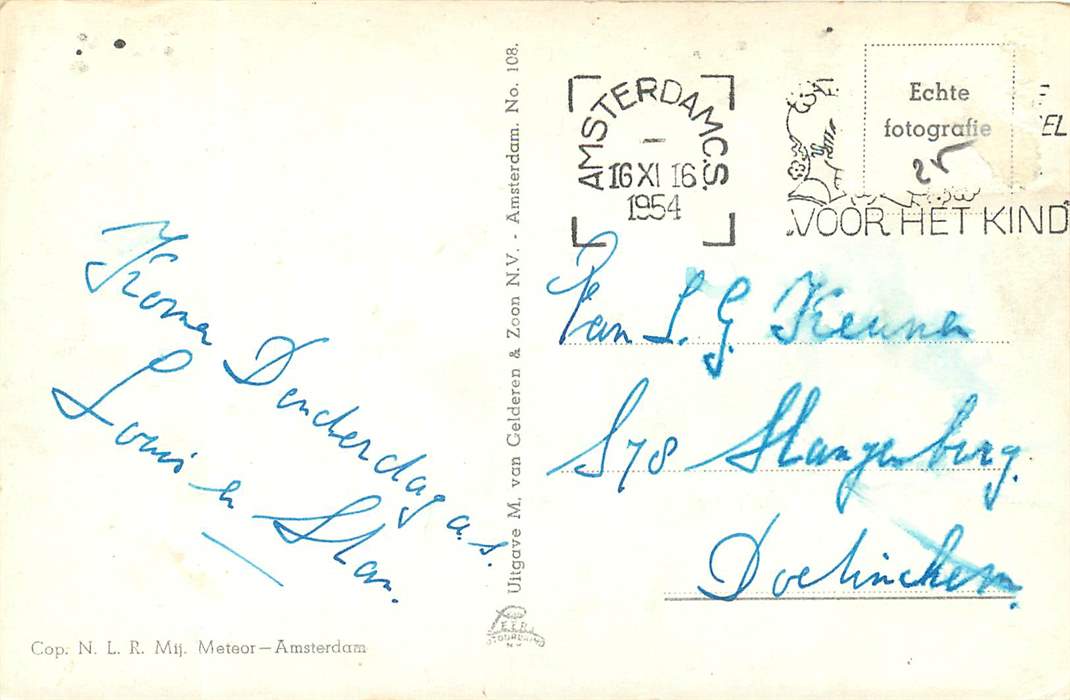 Komen Donderdag a.s.
Louis en Stan.
Cop. N. L. R. Mij. Meteor—Amsterdam
Uitgave M. van Gelderen & Zoon N.V. - Amsterdam. No. 108.
AMSTERDAM C.S.
16 XI 16
1954
Echte
fotografie
25
EL
VOOR HET KIND
Fam L. G. Keunen
S78 Slangenburg.
Doetinchem.